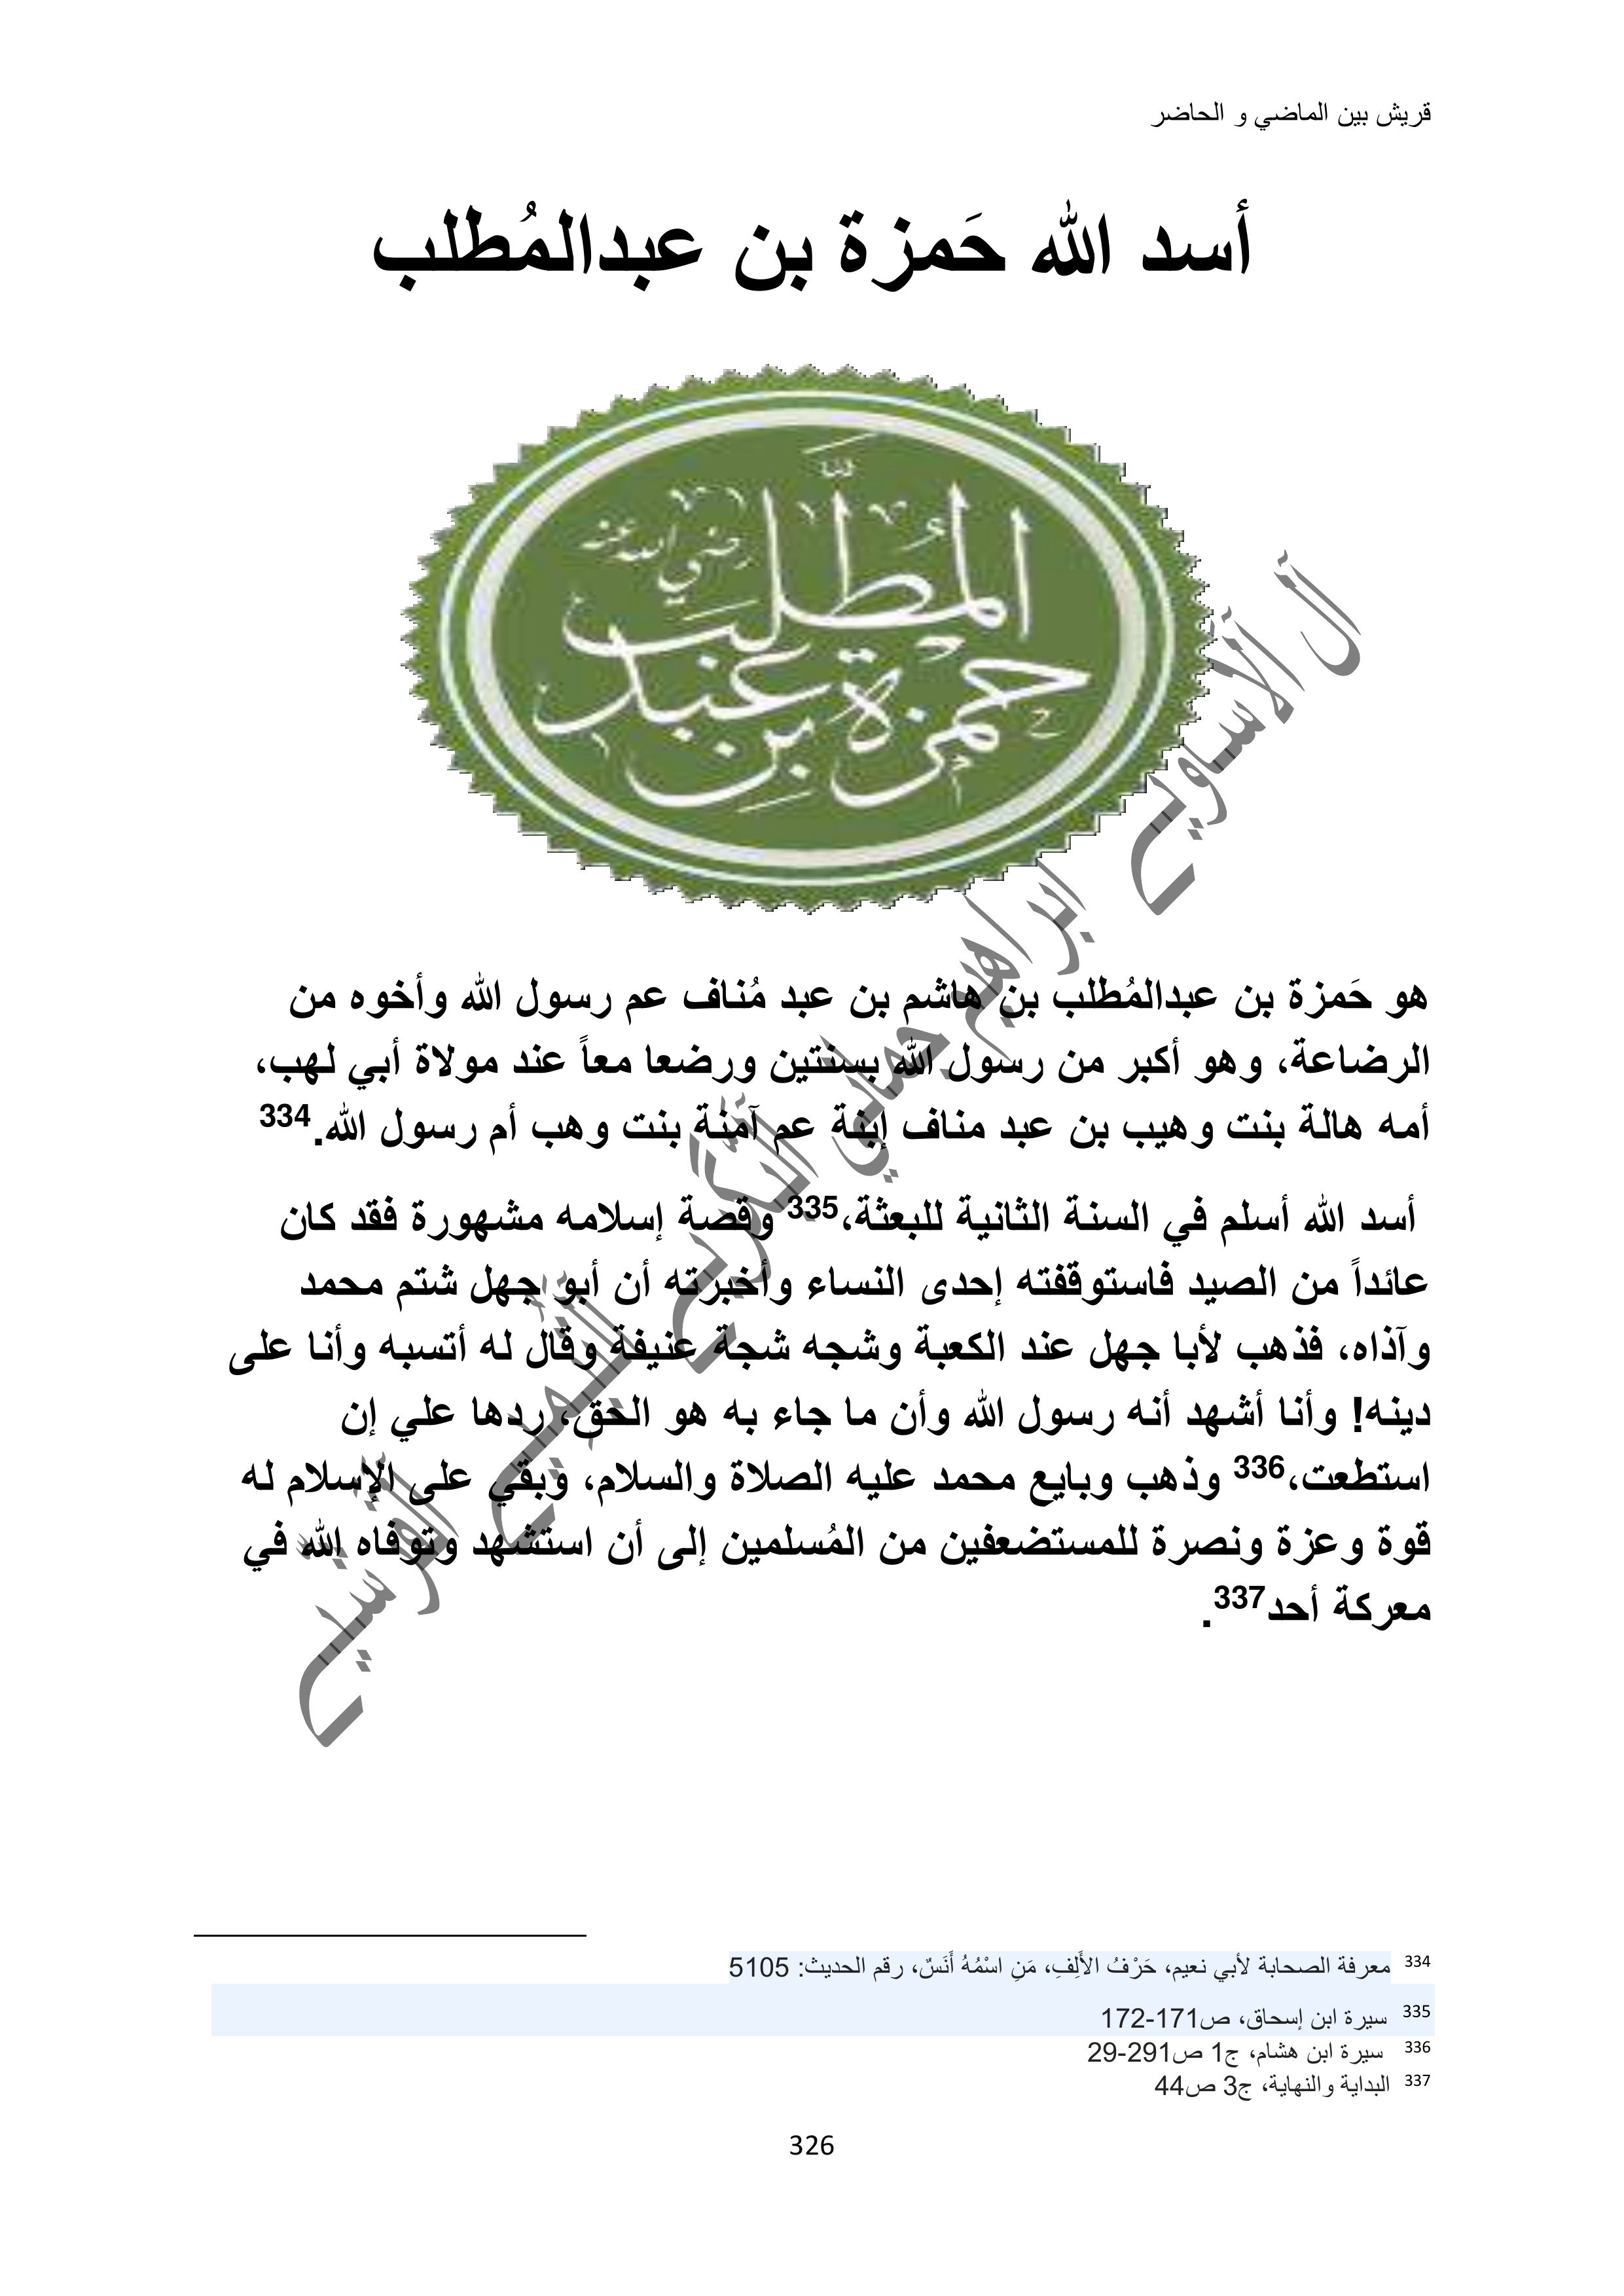 قريش بين الماضي و الحاضر
أسد الله حَمزة بن عبدالمُطلب
المُطَّلِب
رضي الله عنه
حمزة بن عبد
هو حَمزة بن عبدالمُطلب بن هاشم بن عبد مُناف عم رسول الله وأخوه من
الرضاعة، وهو أكبر من رسول الله بسنتين ورضعا معاً عند مولاة أبي لهب،
أمه هالة بنت وهيب بن عبد مناف إبنة عم آمنة بنت وهب أم رسول الله.334
أسد الله أسلم في السنة الثانية للبعثة،335 وقصة إسلامه مشهورة فقد كان
عائداً من الصيد فاستوقفته إحدى النساء وأخبرته أن أبو جهل شتم محمد
وآذاه، فذهب لأبا جهل عند الكعبة وشجه شجة عنيفة وقال له أتسبه وأنا على
دينه! وأنا أشهد أنه رسول الله وأن ما جاء به هو الحق، ردها علي إن
استطعت،336 وذهب وبايع محمد عليه الصلاة والسلام، وبقي على الإسلام له
قوة وعزة ونصرة للمستضعفين من المُسلمين إلى أن استشهد وتوفاه الله في
معركة أحد337.
334 معرفة الصحابة لأبي نعيم، حَرْفُ الأَلِفِ، مَنِ اسْمُهُ أَنَسٌ، رقم الحديث: 5105
335 سيرة ابن إسحاق، ص171-172
336 سيرة ابن هشام، ج1 ص291-29
337 البداية والنهاية، ج3 ص44
326